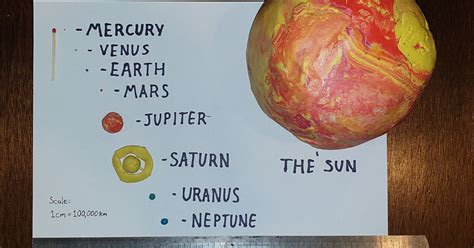 - MERCURY
- VENUS
- EARTH
- MARS
- JUPITER
- SATURN
THE SUN
- URANUS
- NEPTUNE
Scale:
1cm = 100,000km